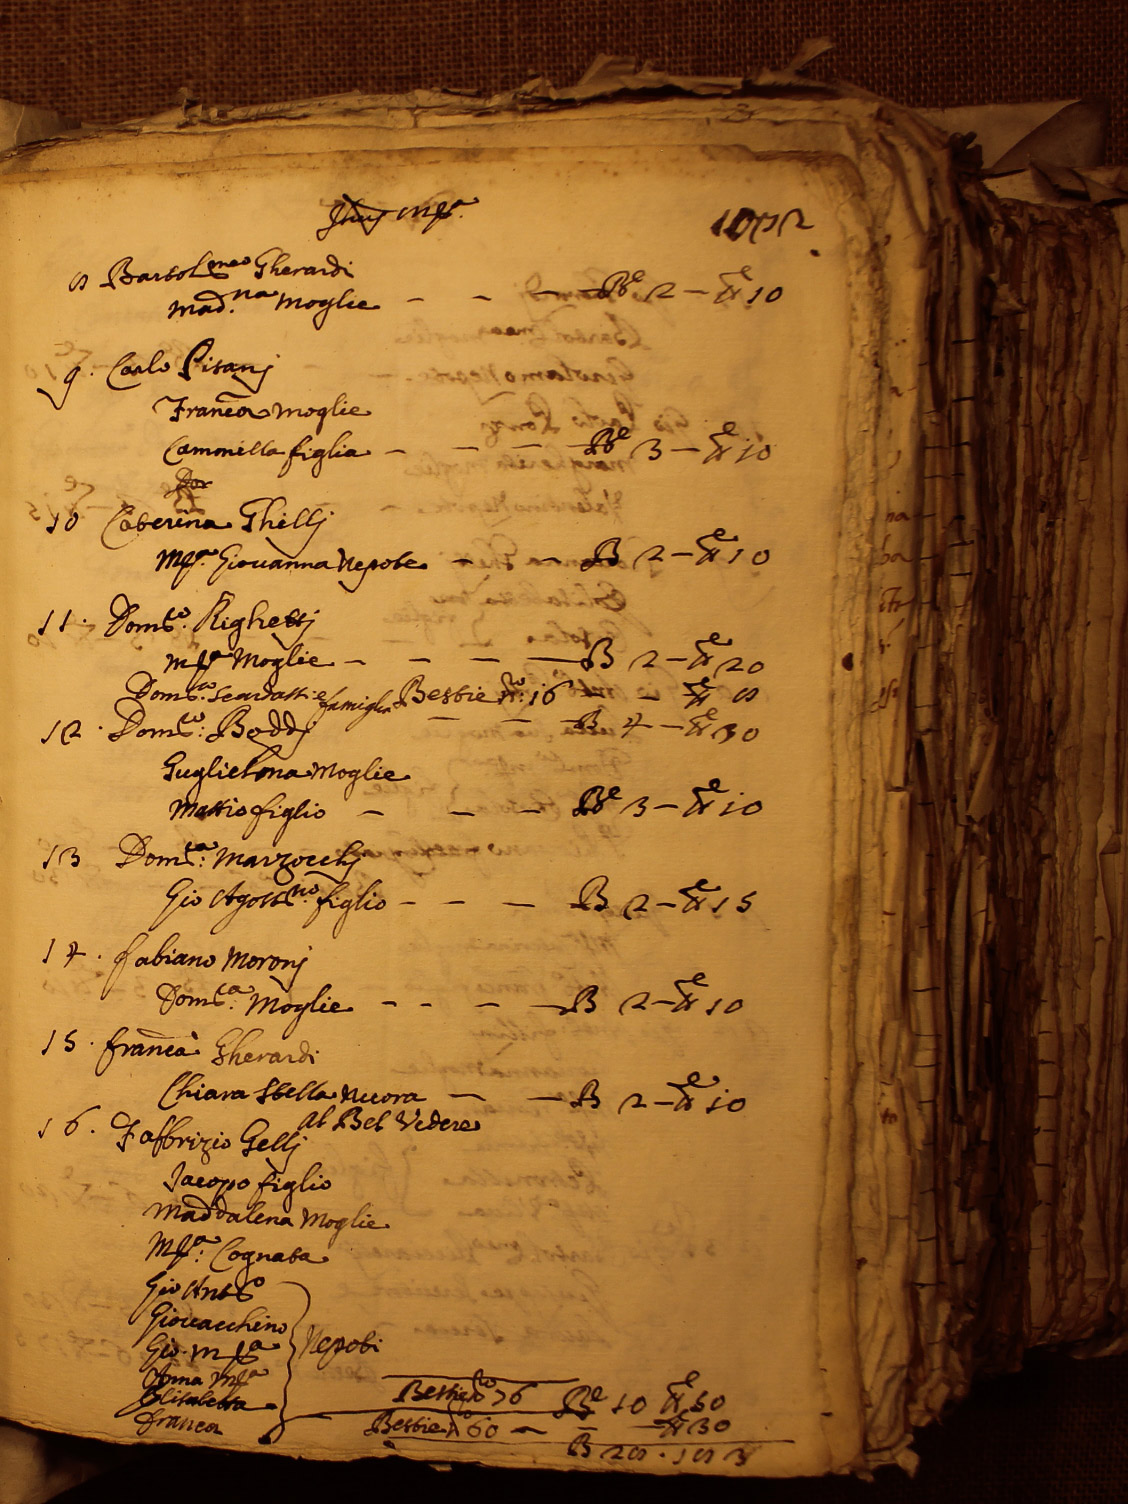 8 Bartol.meo Gherardi
Mad.na Moglie - - - B.e 2 - 10
9. Carlo Pisanj
Franca Moglie
Cammilla figlia - - - B.e 3 - 10
10 Caterina Ghellj
M.a Giovanna Nepote - - B 2 - 10
11. Dom.co Righettj
M.a Moglie - - - B 2 - 20
Dom.co e famiglia Bestie n.o 16 - 8
12. Dom.co Boddj - - B 4 - 30
Guglielma Moglie
Mattio figlio - - - B.e 3 - 10
13 Dom.ca Marzocchj
Gio Agost.no figlio - - - B 2 - 15
14. fabiano Moronj
Dom.ca Moglie - - - B 2 - 10
15. franca Gherardi
Chiara Stella Nuora - - B 2 - 10
16. Faffrizio Gellj al Bel Vedere
Jacopo figlio
Maddalena Moglie
M.a Cognata
Gio Ant.o
Giovacchino
Gio. M.a Nepoti
Anna M.a
Elisabetta Bestie n.o 76 B.e 10 50
franca Bestie n.o 60 - - 30
B 28 . 183